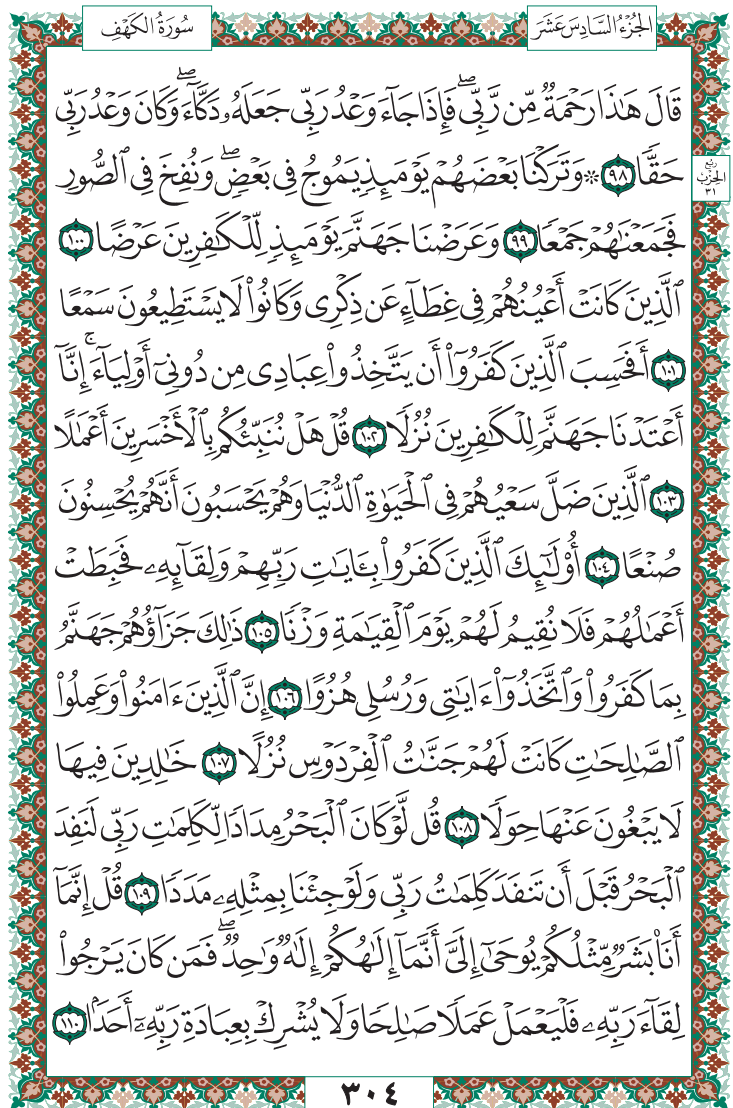 الجُزْءُ السَّادِسَ عَشَرَ
سُورَةُ الكَهْفِ
قَالَ هَٰذَا رَحْمَةٌ مِّن رَّبِّي ۖ فَإِذَا جَآءَ وَعْدُ رَبِّي جَعَلَهُۥ دَكَّآءَ ۖ وَكَانَ وَعْدُ رَبِّي
حَقًّا ٩٨ ۞ وَتَرَكْنَا بَعْضَهُمْ يَوْمَئِذٍ يَمُوجُ فِي بَعْضٍ ۖ وَنُفِخَ فِي ٱلصُّورِ
رُبع الحِزْب ٣١
فَجَمَعْنَٰهُمْ جَمْعًا ٩٩ وَعَرَضْنَا جَهَنَّمَ يَوْمَئِذٍ لِّلْكَٰفِرِينَ عَرْضًا ١٠٠
ٱلَّذِينَ كَانَتْ أَعْيُنُهُمْ فِي غِطَآءٍ عَن ذِكْرِي وَكَانُوا۟ لَا يَسْتَطِيعُونَ سَمْعًا
١٠١ أَفَحَسِبَ ٱلَّذِينَ كَفَرُوٓا۟ أَن يَتَّخِذُوا۟ عِبَادِي مِن دُونِيٓ أَوْلِيَآءَ ۚ إِنَّآ
أَعْتَدْنَا جَهَنَّمَ لِلْكَٰفِرِينَ نُزُلًا ١٠٢ قُلْ هَلْ نُنَبِّئُكُم بِٱلْأَخْسَرِينَ أَعْمَٰلًا
١٠٣ ٱلَّذِينَ ضَلَّ سَعْيُهُمْ فِي ٱلْحَيَوٰةِ ٱلدُّنْيَا وَهُمْ يَحْسَبُونَ أَنَّهُمْ يُحْسِنُونَ
صُنْعًا ١٠٤ أُو۟لَٰٓئِكَ ٱلَّذِينَ كَفَرُوا۟ بِـَٔايَٰتِ رَبِّهِمْ وَلِقَآئِهِۦ فَحَبِطَتْ
أَعْمَٰلُهُمْ فَلَا نُقِيمُ لَهُمْ يَوْمَ ٱلْقِيَٰمَةِ وَزْنًا ١٠٥ ذَٰلِكَ جَزَآؤُهُمْ جَهَنَّمُ
بِمَا كَفَرُوا۟ وَٱتَّخَذُوٓا۟ ءَايَٰتِي وَرُسُلِي هُزُوًا ١٠٦ إِنَّ ٱلَّذِينَ ءَامَنُوا۟ وَعَمِلُوا۟
ٱلصَّٰلِحَٰتِ كَانَتْ لَهُمْ جَنَّٰتُ ٱلْفِرْدَوْسِ نُزُلًا ١٠٧ خَٰلِدِينَ فِيهَا
لَا يَبْغُونَ عَنْهَا حِوَلًا ١٠٨ قُل لَّوْ كَانَ ٱلْبَحْرُ مِدَادًا لِّكَلِمَٰتِ رَبِّي لَنَفِدَ
ٱلْبَحْرُ قَبْلَ أَن تَنفَدَ كَلِمَٰتُ رَبِّي وَلَوْ جِئْنَا بِمِثْلِهِۦ مَدَدًا ١٠٩ قُلْ إِنَّمَآ
أَنَا۠ بَشَرٌ مِّثْلُكُمْ يُوحَىٰٓ إِلَيَّ أَنَّمَآ إِلَٰهُكُمْ إِلَٰهٌ وَٰحِدٌ ۖ فَمَن كَانَ يَرْجُوا۟
لِقَآءَ رَبِّهِۦ فَلْيَعْمَلْ عَمَلًا صَٰلِحًا وَلَا يُشْرِكْ بِعِبَادَةِ رَبِّهِۦٓ أَحَدًۢا ١١٠
٣٠٤